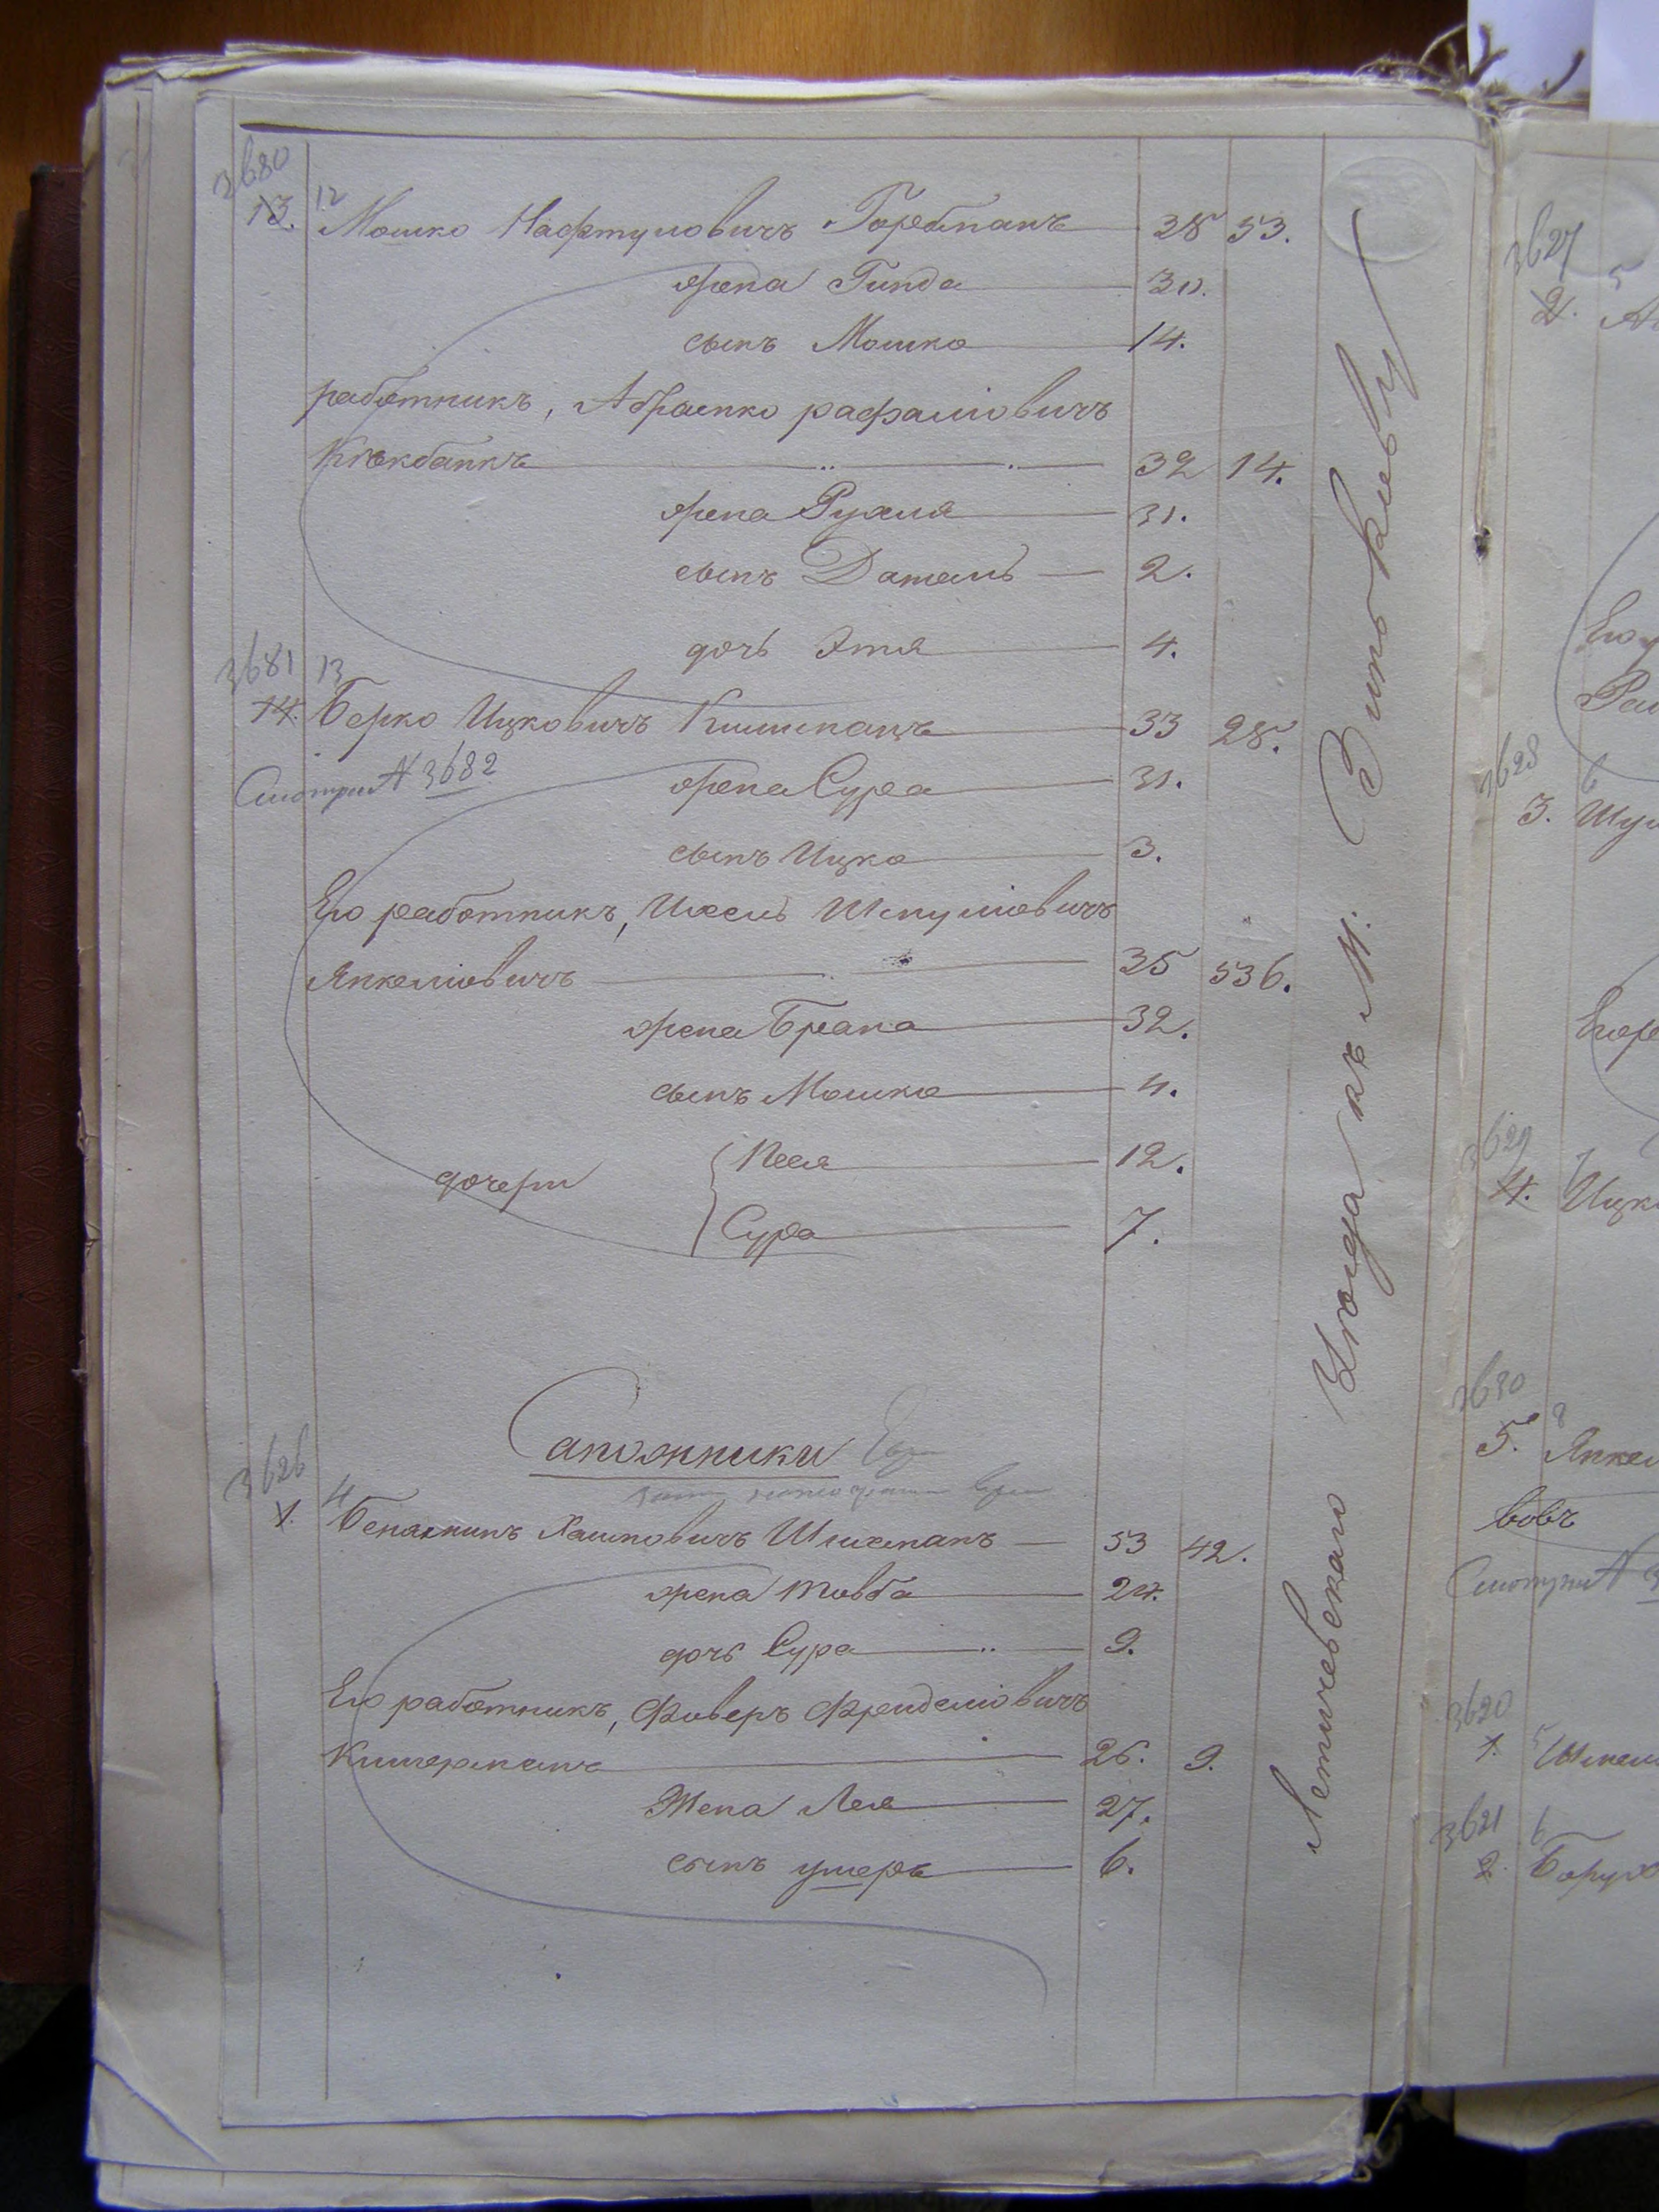 3680
13. 12 Мошко Нафтуловичъ Горебманъ 28 53.
жена Гинда 30.
сынъ Мошко 14.
работникъ, Абрамко рафаліовичъ
Кнѣкбанкъ 32 14.
жена Рухля 31.
сынъ Даталь 2.
дочь Этя 4.
3681 13
14. Берко Ицковичъ Кишманъ 33 28.
Смотри N 3682
жена Сура 31.
сынъ Ицко 3.
Его работникъ, Ихель Шмуліовичъ
Янкеліовичъ 35 536.
жена Брана 32.
сынъ Мошко 4.
дочери Песя 12.
Сура 7.
Сапожники
3626
1. 4 Беняминъ Хаимовичъ Шлихманъ 53 42.
жена Товба 24.
дочь Сура 9.
Его работникъ, Фиверъ Фрейделіовичъ
Кимерманъ 26. 9.
Жена Лея 27.
сынъ умеръ 6.
Летичевскаго Уѣзда къ М. Зиньковцу
3627
2. 5
Его
3628 6
3. Шул
3629 7
4. Ицк
3630 8
5. Янкел
вовъ
Смотри N 3
3620
1. 5 Шмел
3621 6
2. Борух